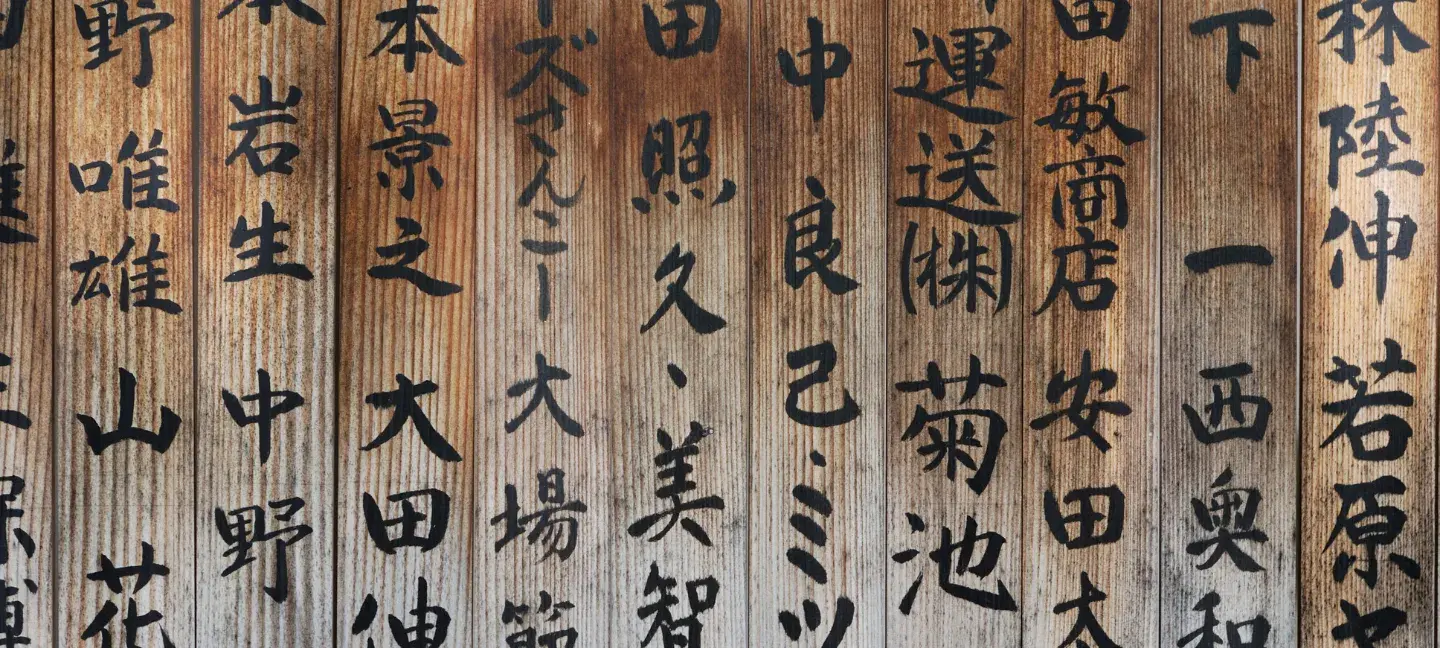 林陸伸 若原
下一 西奥和
田敏商店 安田太
運送(株) 菊池
中良己・ミツ
田照久、美智
ズさんこー 大場節
本景之 大田伸
岩生 中野
野唯雄 山花